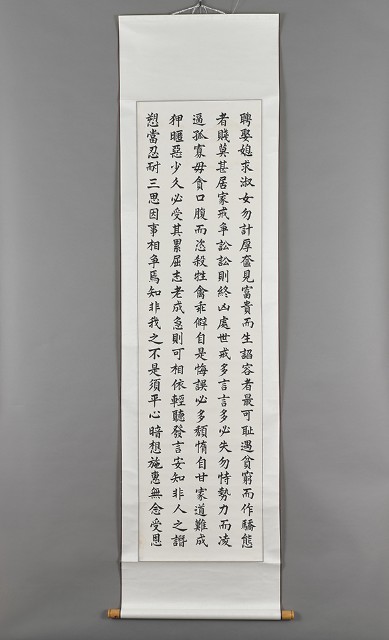 聘娶媳求淑女勿計厚奩見富貴而生諂容者最可耻遇貧窮而作驕態
者賤莫甚居家戒爭訟訟則終凶處世戒多言言多必失勿恃勢力而凌
逼孤寡毋貪口腹而恣殺牲禽乖僻自是悔誤必多頹惰自甘家道難成
狎暱惡少久必受其累屈志老成急則可相依輕聽發言安知非人之譖
愬當忍耐三思因事相爭焉知非我之不是須平心暗想施惠無念受恩